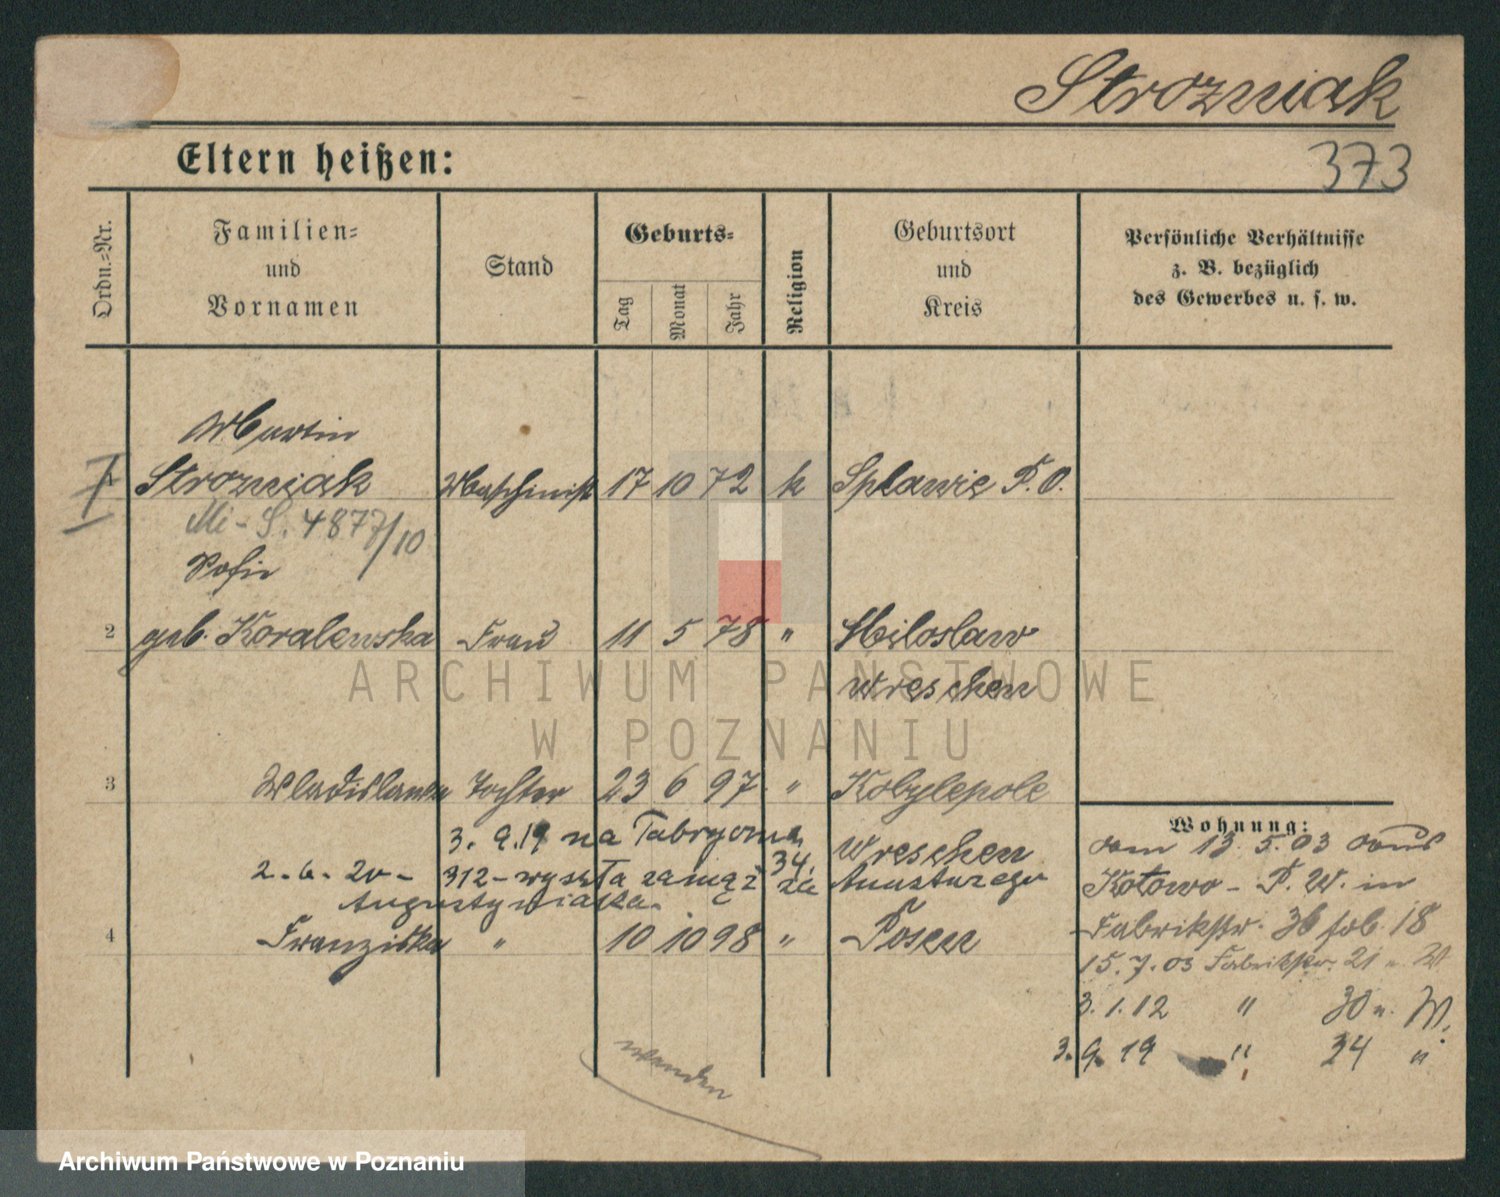 Strozniak
373
Eltern heißen:
Ordn.-Nr.
Familien-
und
Vornamen
Stand
Geburts-
Tag
Monat
Jahr
Religion
Geburtsort
und
Kreis
Persönliche Verhältnisse
z. B. bezüglich
des Gewerbes u. s. w.
Martin
1 Strozniak Maschinist 17 10 72 k Splawie P. O.
Mi-S. 4877/10
Sofie
2 geb. Koralewska Frau 11 5 78 " Miloslaw
Wreschen
3 Wladislawa Tochter 23 6 97 " Kobylepole
Wreschen
3. 9. 19 na
34.
2. 6. 20 - 312 - wyszła zamąż za
Augustyniaka.
4 Franziska " 10 10 98 " Posen
Wohnung:
vom 13. 5. 03 aus
Kotowo - P. W. in
Fabrikstr. 36 18
15. 7. 03 Fabrikstr. 21 " W
3. 1. 12 " 30 " W.
3. 9. 19 " 34 "
wenden
ARCHIWUM PAŃSTWOWE
W POZNANIU
Archiwum Państwowe w Poznaniu